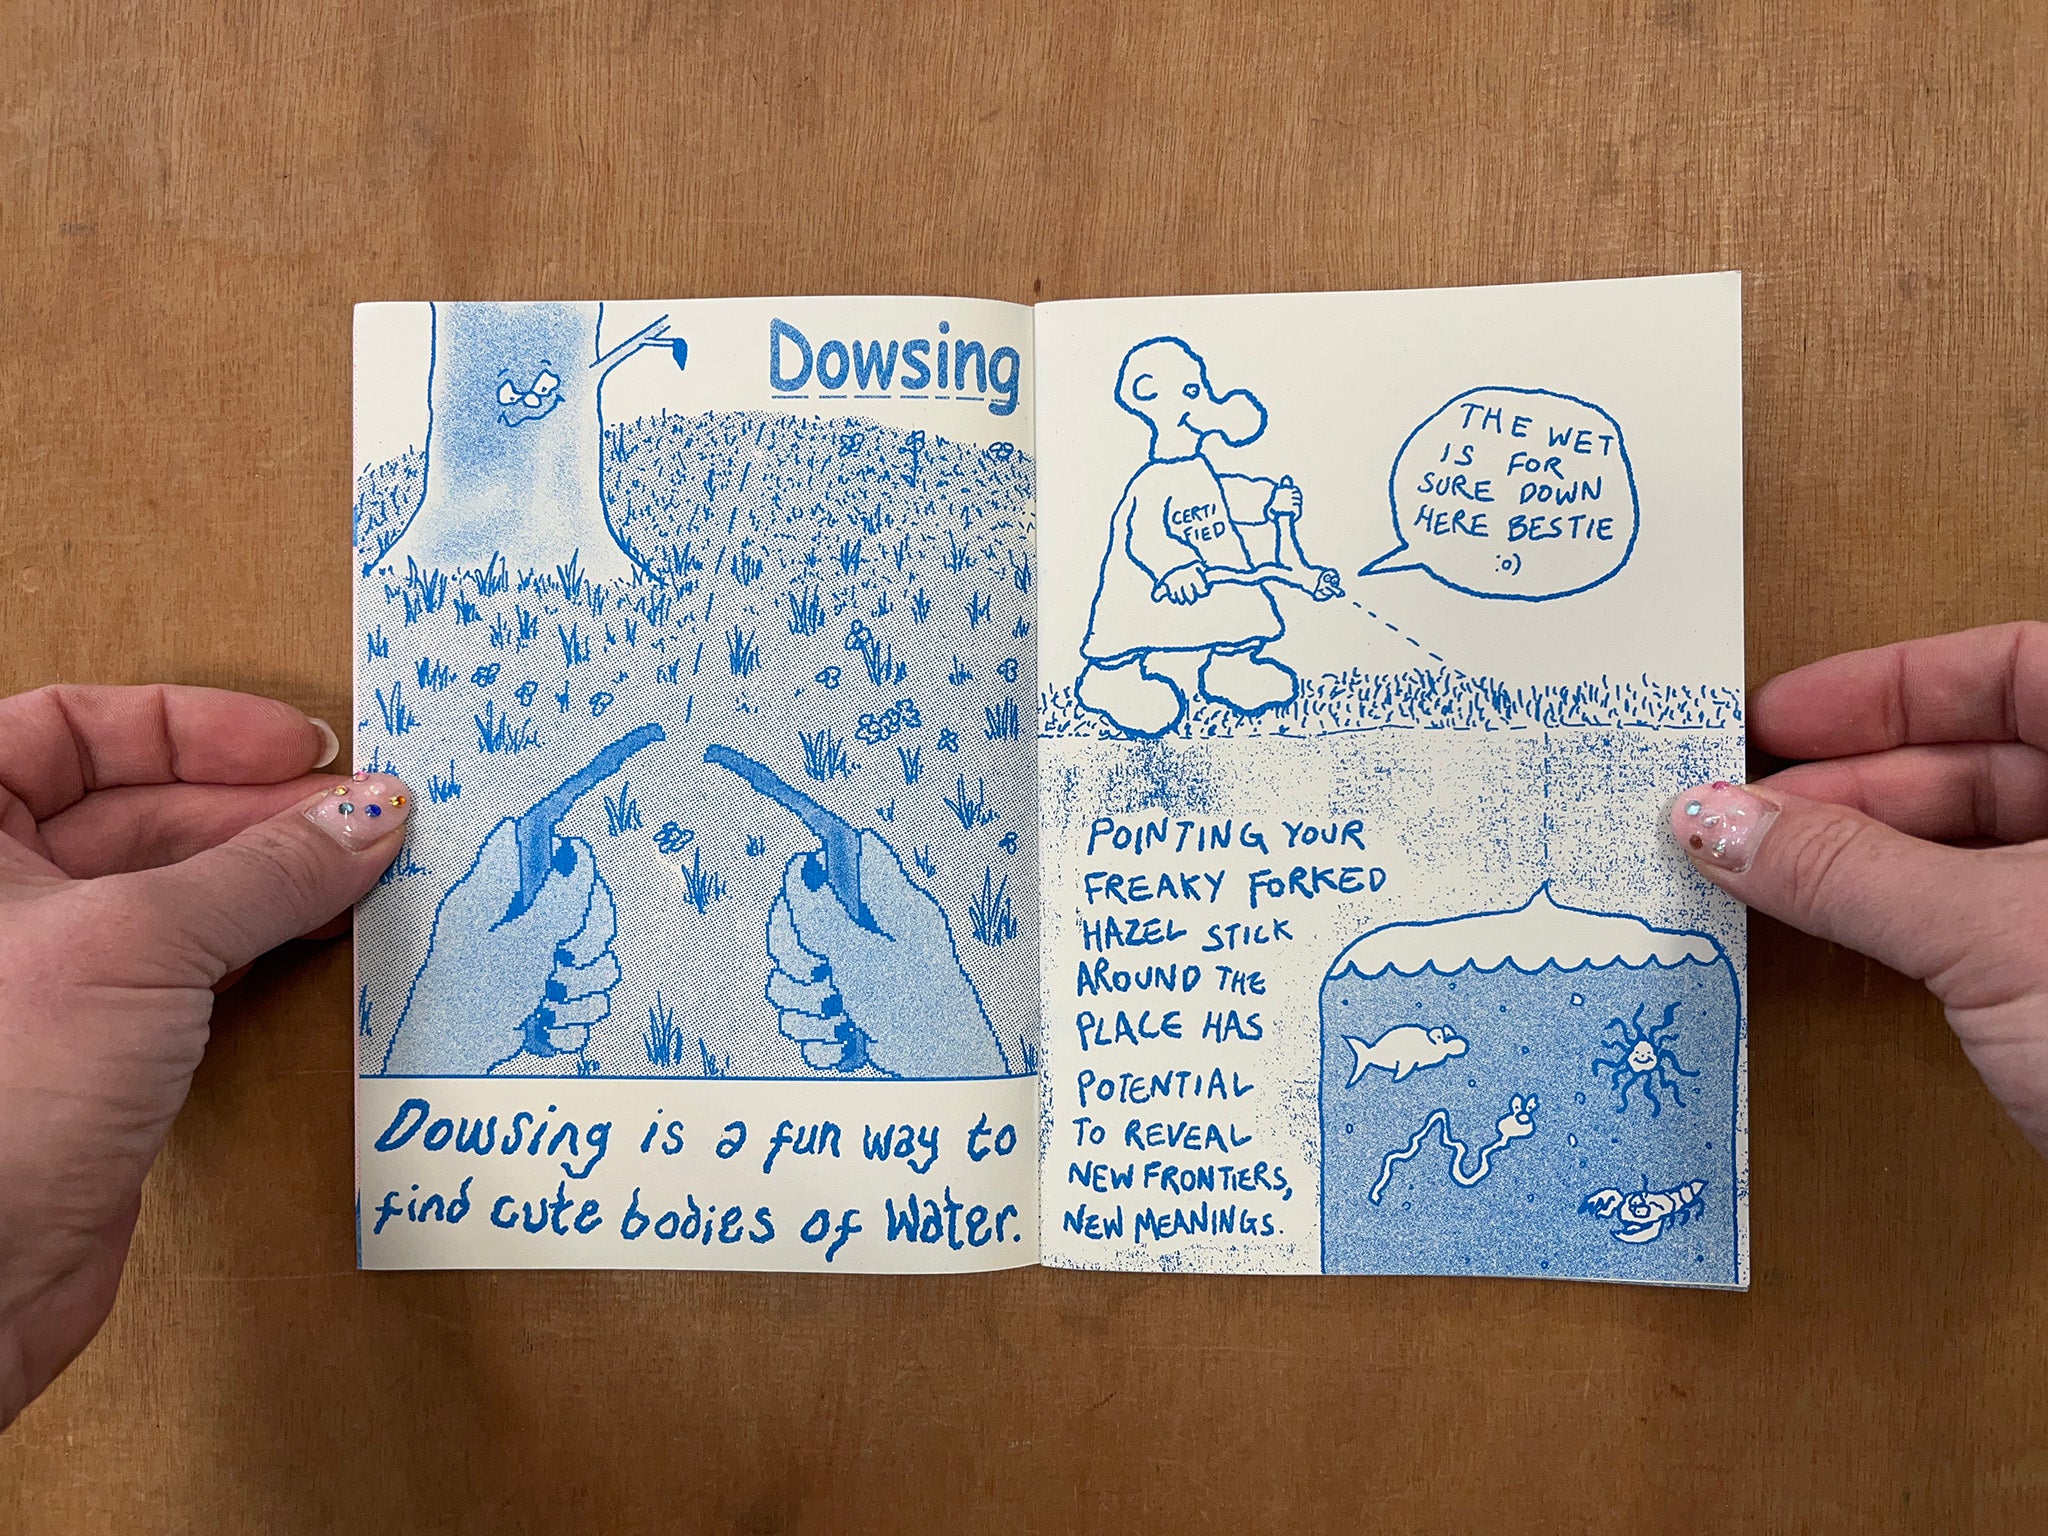 Dowsing
Dowsing is a fun way to
find cute bodies of Water.
THE WET
IS FOR
SURE DOWN
HERE BESTIE
:o)
CERTI
FIED
POINTING YOUR
FREAKY FORKED
HAZEL STICK
AROUND THE
PLACE HAS
POTENTIAL
TO REVEAL
NEW FRONTIERS,
NEW MEANINGS.